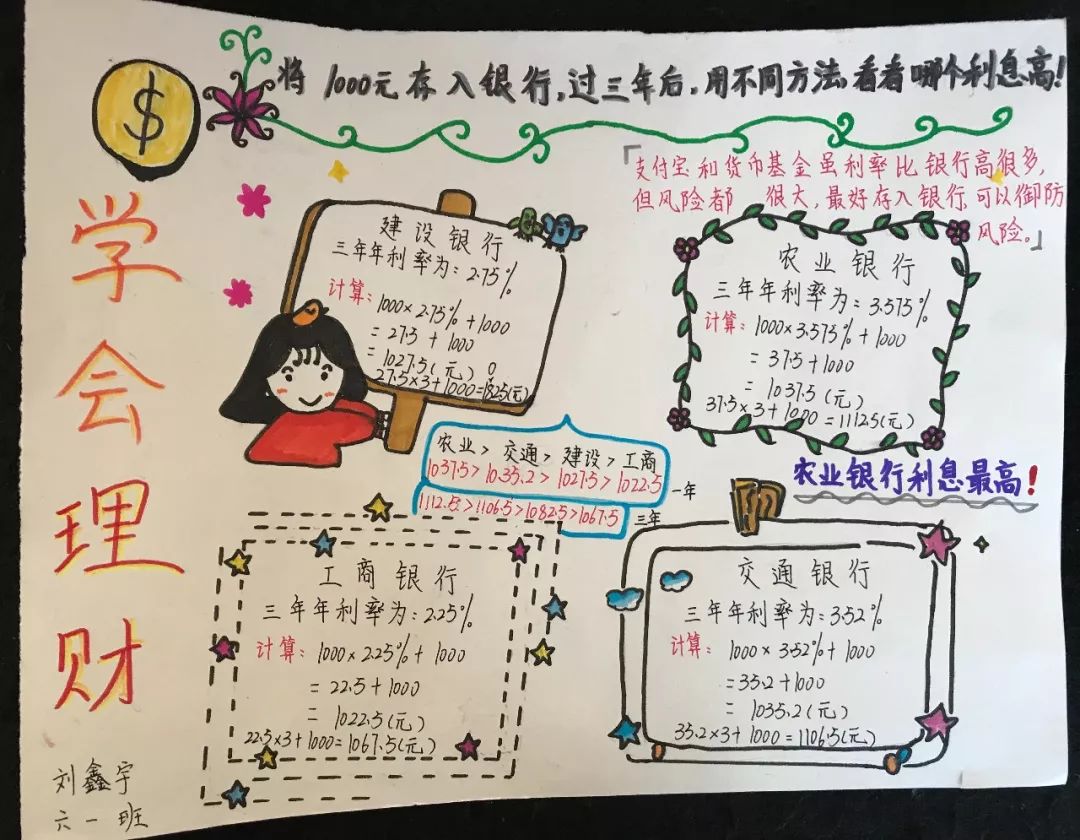 将1000元存入银行,过三年后,用不同方法,看看哪个利息高!
学会理财
「支付宝和货币基金虽利率比银行高很多,
但风险都 很大,最好存入银行,可以御防
风险。」
建设银行
三年年利率为:2.75%
计算:1000×2.75%+1000
=27.5+1000
=1027.5(元)。
27.5×3+1000=182.5(元)
农业银行
三年年利率为:3.575%
计算:1000×3.575%+1000
=37.5+1000
=1037.5(元)
37.5×3+1000=1112.5(元)
农业银行利息最高!
农业>交通>建设>工商
1037.5>1035.2>1027.5>1022.5
一年
1112.5>1106.5>1082.5>1067.5
三年
工商银行
三年年利率为:2.25%
计算:1000×2.25%+1000
=22.5+1000
=1022.5(元)
22.5×3+1000=1067.5(元)
交通银行
三年年利率为:3.52%
计算:1000×3.52%+1000
=35.2+1000
=1035.2(元)
35.2×3+1000=1106.5(元)
刘鑫宇
六一班